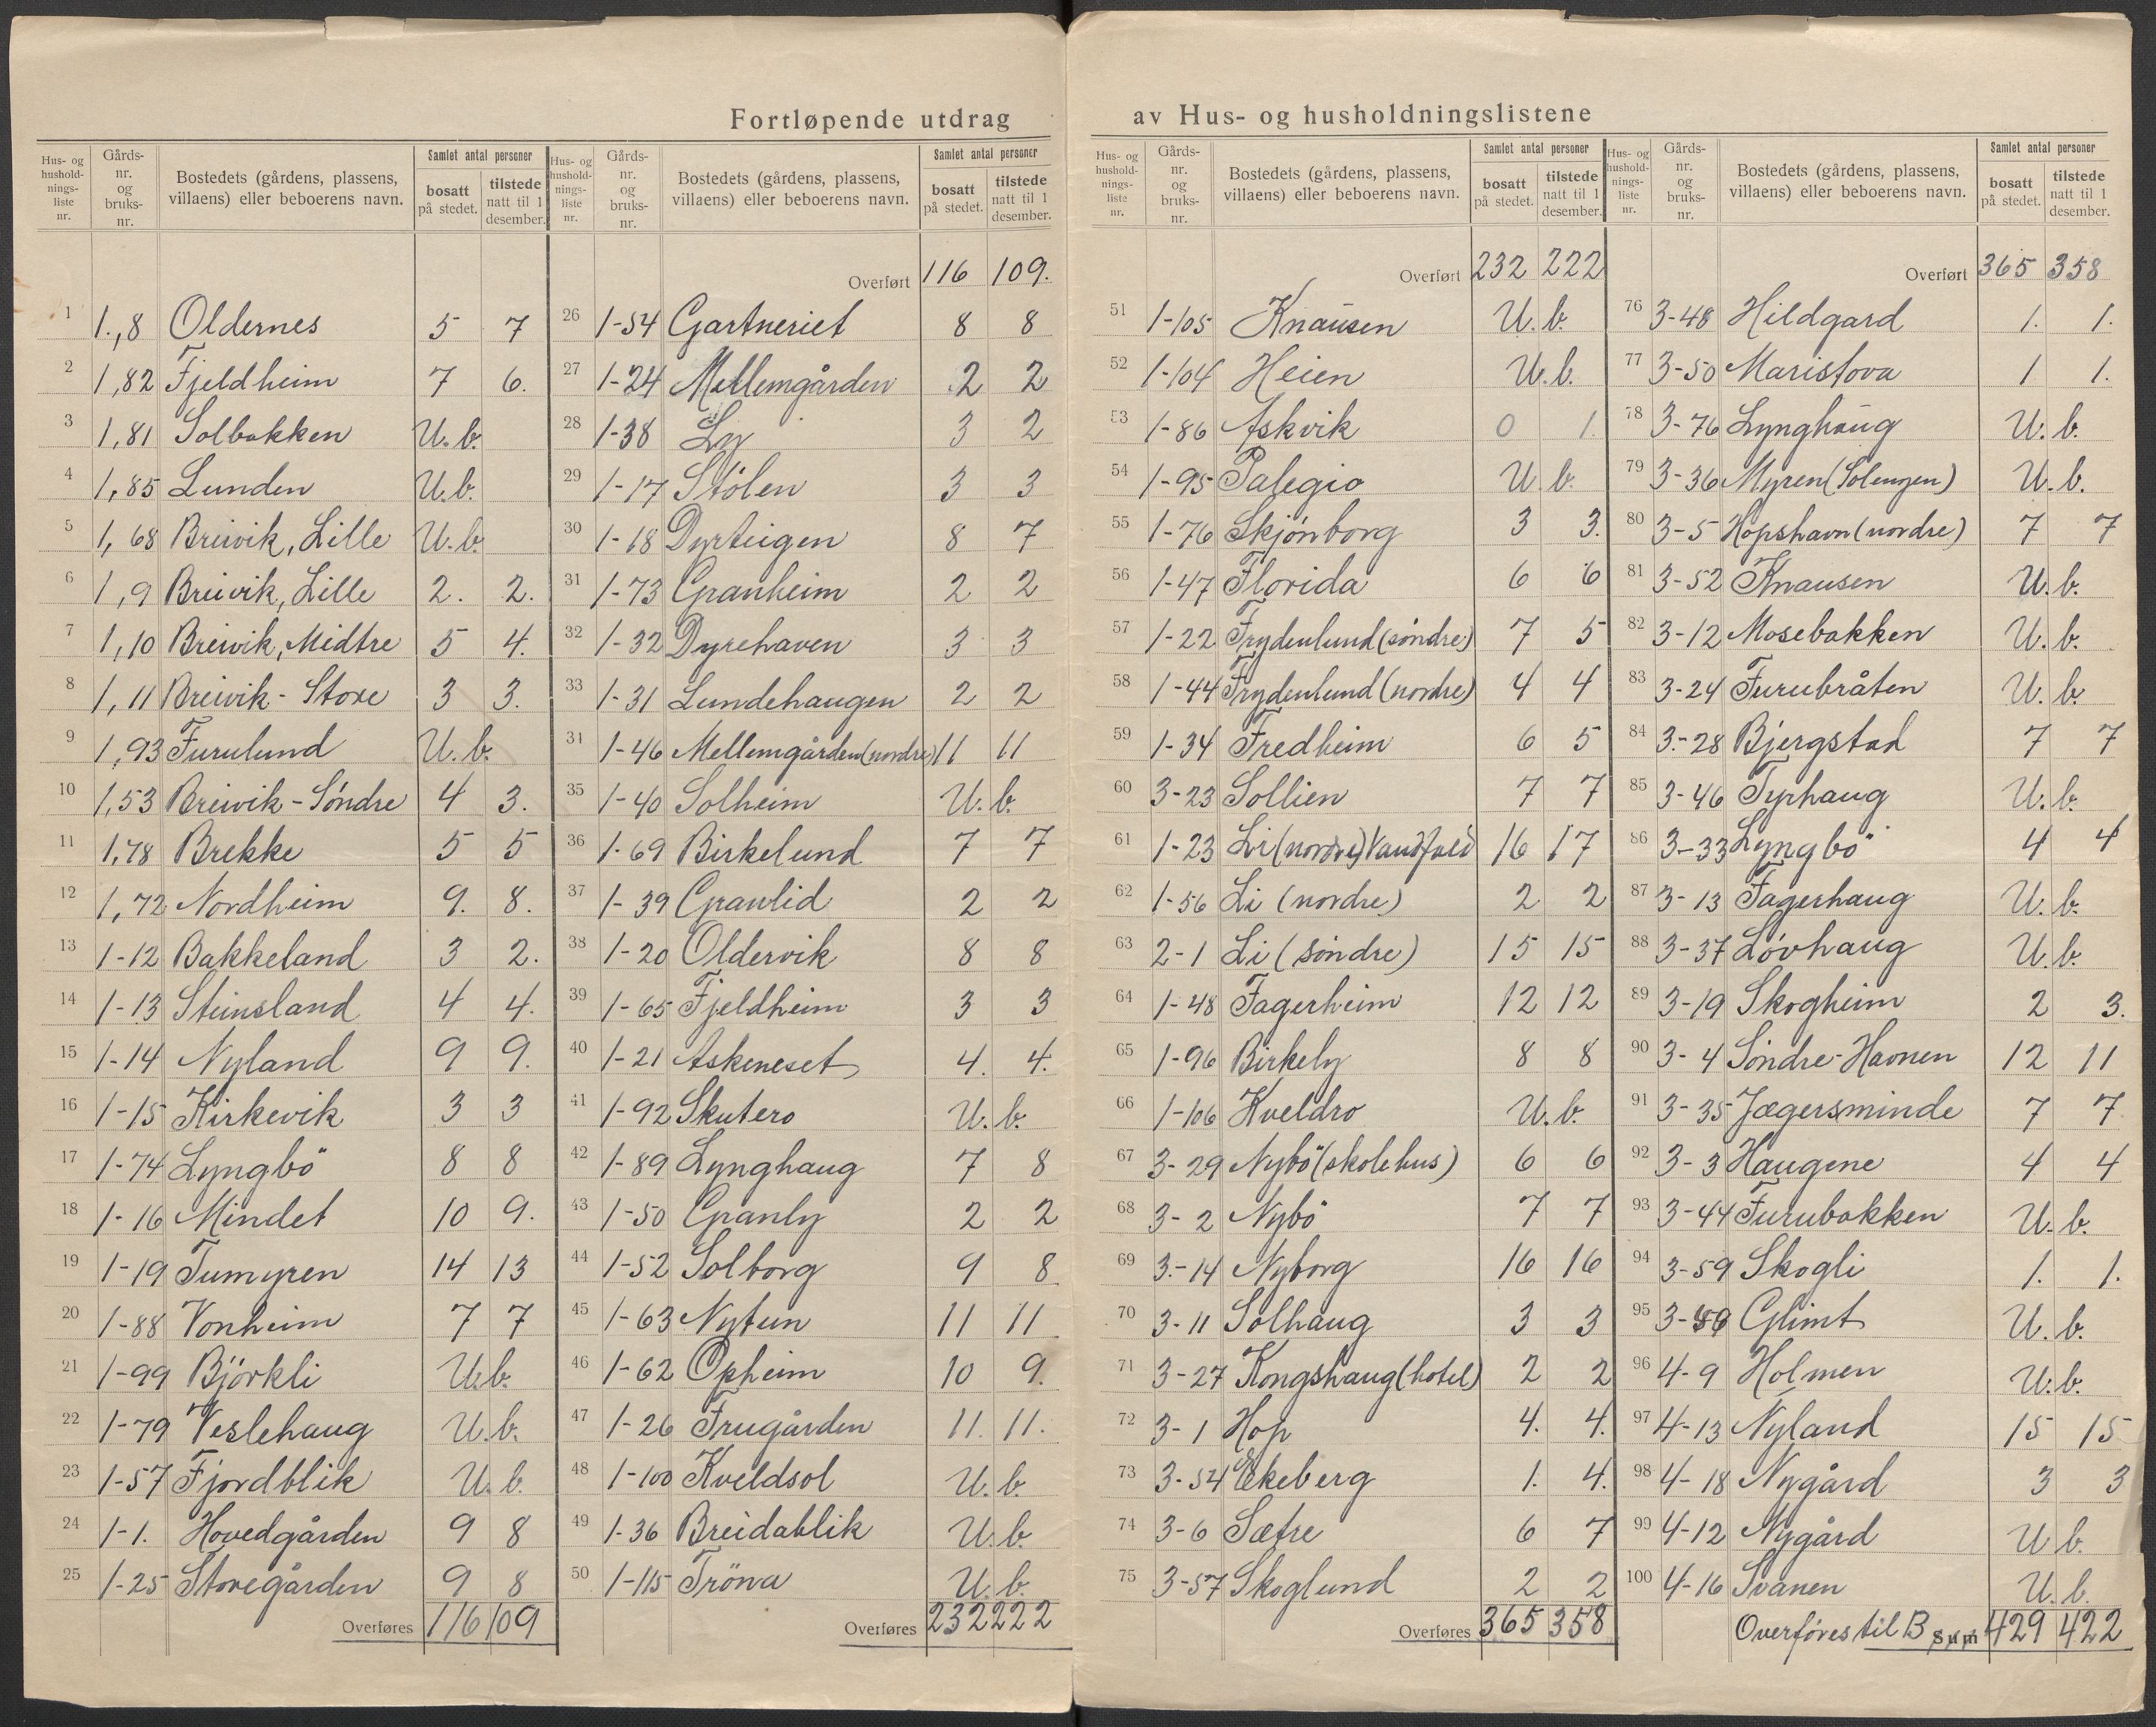 Fortløpende utdrag av Hus- og husholdningslistene
Hus- og husholdnings- liste nr. | Gårds- nr. og bruks- nr. | Bostedets (gårdens, plassens, villaens) eller beboerens navn. | Samlet antal personer | bosatt på stedet. | tilstede natt til 1 desember.
1 1.,8 Oldernes 5 7
2 1,82 Fjeldheim 7 6.
3 1,81 Solbakken U.b.
4 1,85 Lunden U.b.
5 1,68 Breivik, Lille U.b.
6 1,9 Breivik, Lille 2. 2.
7 1,10 Breivik, Midtre 5 4.
8 1,11 Breivik - Store 3 3.
9 1,93 Furulund U.b.
10 1,53 Breivik - Söndre 4 3.
11 1,78 Brekke 5 5
12 1,72 Nordheim 9. 8.
13 1-12 Bakkeland 3 2.
14 1-13 Steinsland 4 4.
15 1-14 Nyland 9 9.
16 1-15 Kirkevik 3 3
17 1-74 Lyngbö 8 8
18 1-16 Mindet 10 9.
19 1-19 Tumyren 14 13
20 1-88 Vonheim 7 7
21 1-99 Björkli U.b.
22 1-79 Veslehaug U.b.
23 1-57 Fjordblik U.b.
24 1-1. Hovedgården 9 8
25 1-25 Storegården 9 8
Overføres 116 109
Hus- og husholdnings- liste nr. | Gårds- nr. og bruks- nr. | Bostedets (gårdens, plassens, villaens) eller beboerens navn. | Samlet antal personer | bosatt på stedet. | tilstede natt til 1 desember.
Overført 116 109.
26 1-54 Gartneriet 8 8
27 1-24 Mellemgården 2 2
28 1-38 Ly 3 2
29 1-17 Stölen 3 3
30 1-18 Dyrteigen 8 7
31 1-73 Granheim 2 2
32 1-32 Dyrehaven 3 3
33 1-31 Lundehaugen 2 2
34 1-46 Mellemgården (nordre) 11 11
35 1-40 Solheim U.b.
36 1-69 Birkelund 7 7
37 1-39 Granlid 2 2
38 1-20 Oldervik 8 8
39 1-65 Fjeldheim 3 3
40 1-21 Askeneset 4. 4.
41 1-92 Skutero U.b.
42 1-89 Lynghaug 7 8
43 1-50 Granly 2 2
44 1-52 Solborg 9 8
45 1-63 Nytun 11 11
46 1-62 Opheim 10 9.
47 1-26 Frugården 11. 11.
48 1-100 Kveldsol U.b.
49 1-36 Breidablik U.b.
50 1-115 Tröna U.b.
Overføres 232 222
Hus- og husholdnings- liste nr. | Gårds- nr. og bruks- nr. | Bostedets (gårdens, plassens, villaens) eller beboerens navn. | Samlet antal personer | bosatt på stedet. | tilstede natt til 1 desember.
Overført 232 222
51 1-105 Knausen U.b.
52 1-104 Heien U.b.
53 1-86 Askvik 0 1.
54 1-95 Palegio U.b.
55 1-76 Skjönborg 3 3.
56 1-47 Florida 6 6
57 1-22 Frydenlund (söndre) 7 5
58 1-44 Frydenlund (nordre) 4 4
59 1-34 Fredheim 6 5
60 3-23 Sollien 7 7
61 1-23 Li (nordre) 16 17
62 1-56 Li (nordre) 2 2
63 2-1 Li (söndre) 15 15
64 1-48 Fagerheim 12 12
65 1-96 Birkely 8 8
66 1-106 Kveldro U.b.
67 3-29 Nybö (skolehus) 6 6
68 3-2 Nybö 7 7
69 3.-14 Nyborg 16 16
70 3-11 Solhaug 3 3
71 3-27 Kongshaug (hotel) 2 2
72 3-1 Hop 4. 4.
73 3-54 Ekeberg 1. 4.
74 3-6 Sætre 6 7
75 3-57 Skoglund 2 2
Overføres 365 358
Hus- og husholdnings- liste nr. | Gårds- nr. og bruks- nr. | Bostedets (gårdens, plassens, villaens) eller beboerens navn. | Samlet antal personer | bosatt på stedet. | tilstede natt til 1 desember.
Overført 365 358
76 3-48 Hildgard 1. 1.
77 3-50 Maristova 1 1.
78 3-76 Lynghaug U.b.
79 3-36 Myren (Solengen) U.b.
80 3-5 Hopshavn (nordre) 7 7
81 3-52 Knausen U.b.
82 3-12 Mosebakken U.b.
83 3-24 Furubråten U.b.
84 3.-28 Bjergstad 7 7
85 3-46 Tyrhaug U.b.
86 3-33 Lyngbö 4 4
87 3-13 Fagerhaug U.b.
88 3-37 Lövhaug U.b.
89 3-19 Skogheim 2 3.
90 3-4 Söndre-Havnen 12 11
91 3-35 Jægersminde 7 7
92 3-3 Haugene 4 4
93 3-44 Furubakken U.b.
94 3-59 Skogli 1. 1.
95 Glimt U.b.
96 4-9 Holmen U.b.
97 4-13 Nyland 15 15
98 4-18 Nygård 3 3
99 4-12 Nygård U.b.
100 4-16 Svanen U.b.
Overföres til B sum 429 422